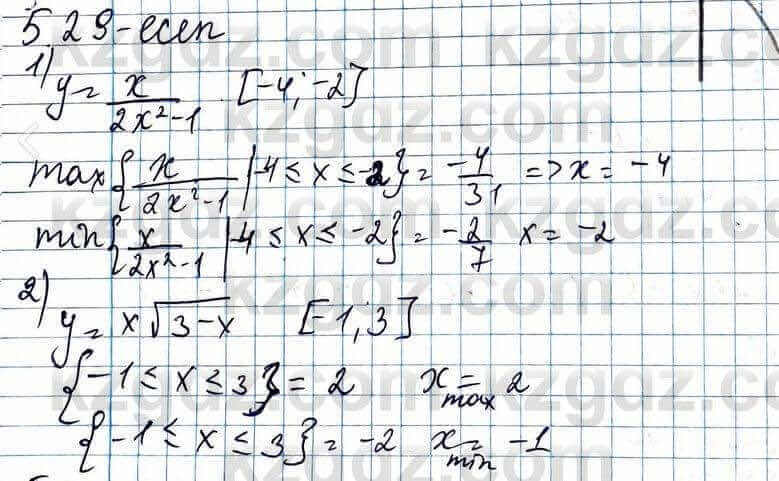 529-есеп
1) y = x/(2x²-1) [-4; -2]
max{x/(2x²-1) | -4 ≤ x ≤ -2} = -4/31 => x = -4
min{x/(2x²-1) | -4 ≤ x ≤ -2} = -2/7 x = -2
2) y = x√(3-x) [-1; 3]
{-1 ≤ x ≤ 3} = 2 x max = 2
{-1 ≤ x ≤ 3} = -2 x min = -1
kzgdz.com